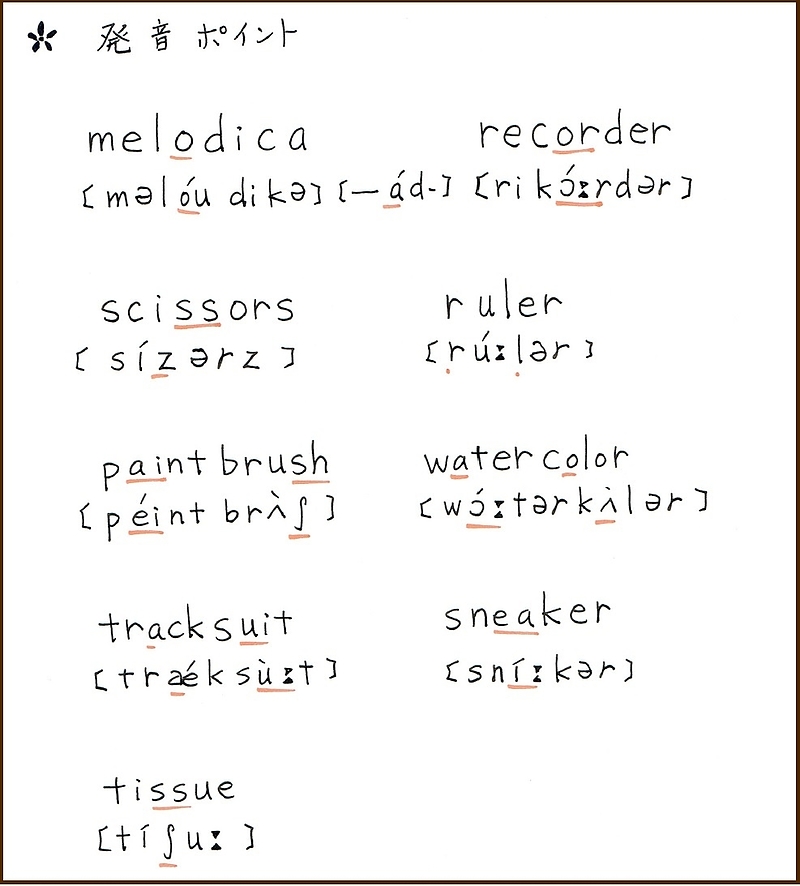 * 発音ポイント
melodica recorder
[məlóudikə] [—ád-] [rikɔ́ːrdər]
scissors ruler
[sízərz] [rúːlər]
paintbrush watercolor
[péintbrʌ̀ʃ] [wɔ́ːtərkʌ̀lər]
tracksuit sneaker
[trǽksùːt] [sníːkər]
tissue
[tíʃuː]